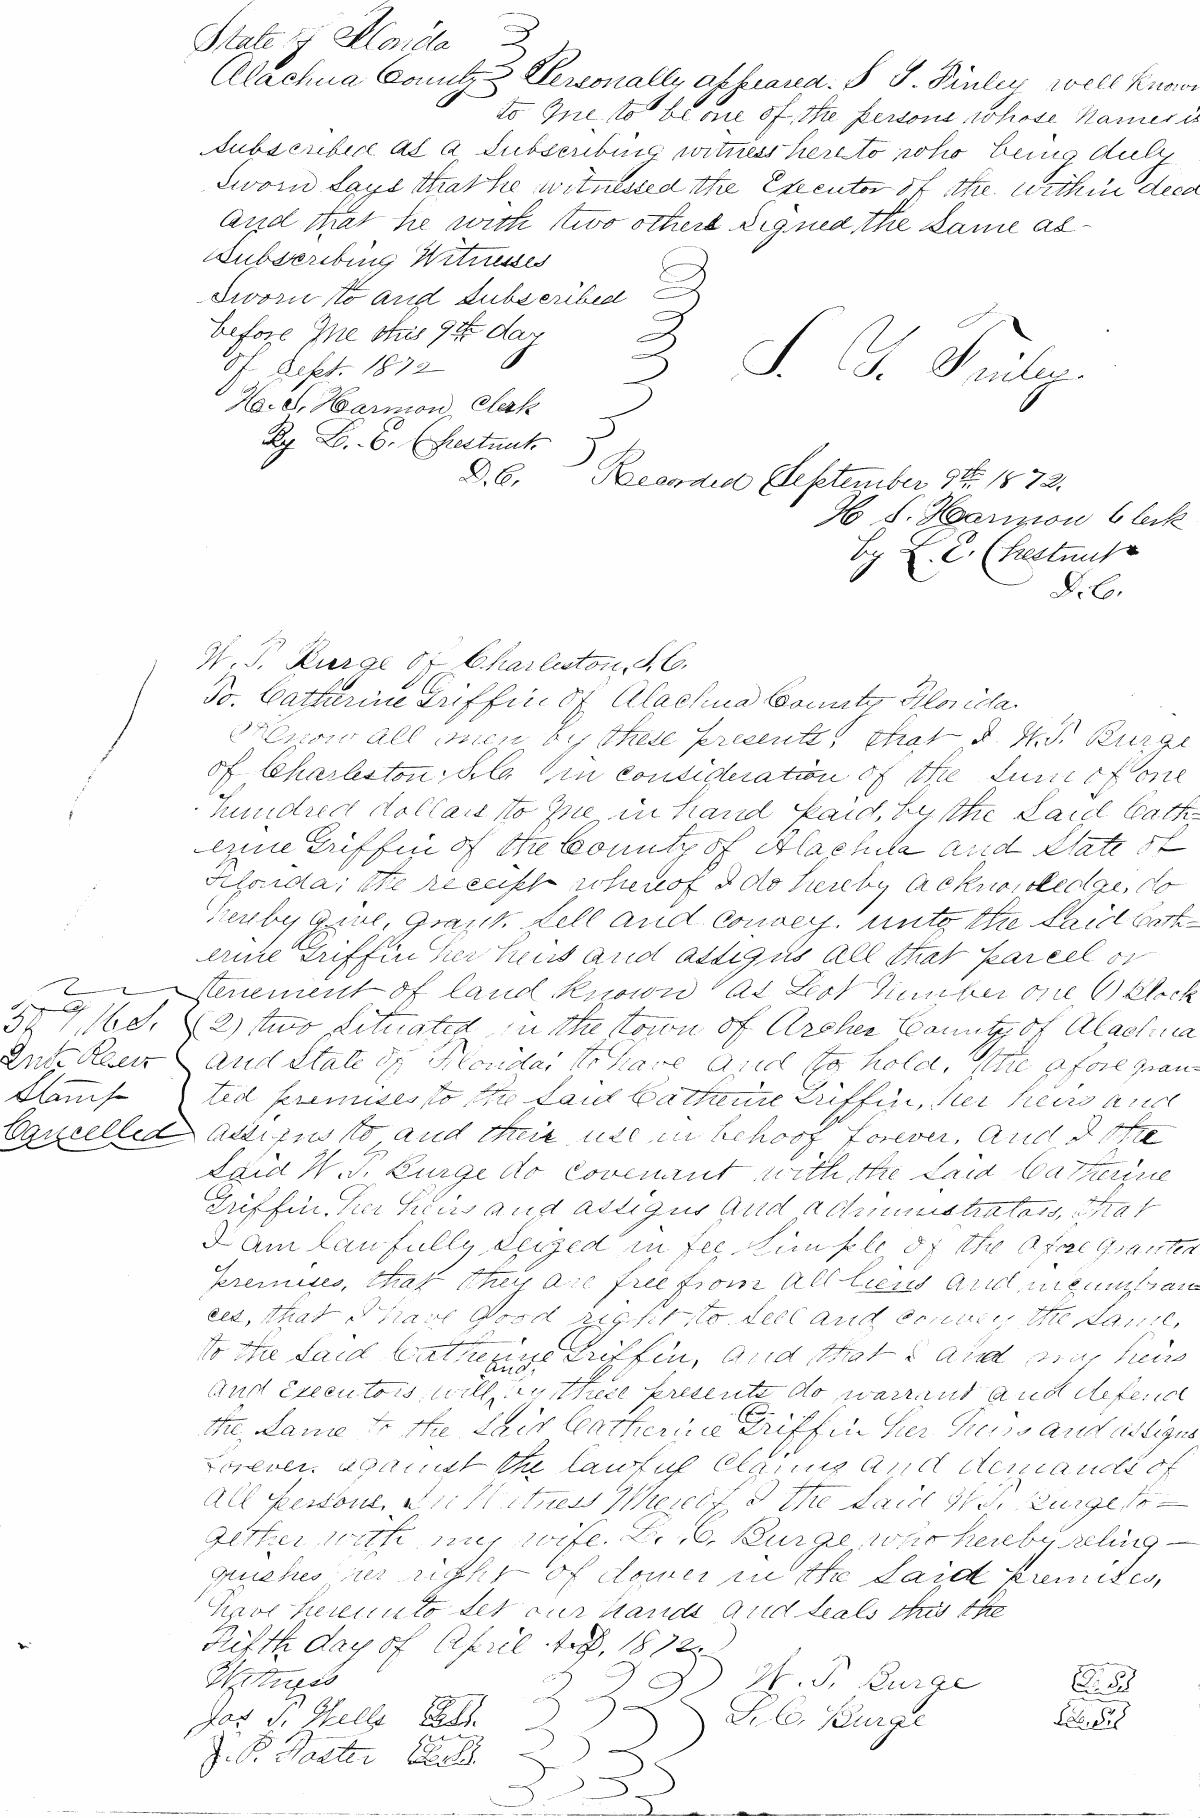 State of Florida
Alachua County Personally appeared. S Y. Finley well known
to me to be one of the persons whose names is
subscribed as a Subscribing witness hereto who being duly
Sworn Says that he witnessed the Executor of the within deed
and that he with two others Signed the Same as-
Subscribing Witnesses
Sworn to and Subscribed
before me this 9th day
of Sept. 1872
S. Y. Finley.
H. S. Harmon Clerk
By L. E. Chestnut
D.C.
Recorded September 9th 1872.
H S. Harmon Clerk
by L. E. Chestnut
D.C.
W. T. Burge of Charleston, S.C.
To. Catherine Griffin of Alachua County Florida.
Know all men by these presents, that I W.T. Burge
of Charleston. S.C. in consideration of the Sum of one
hundred dollars to me in hand paid, by the Said Cath=
erine Griffin of the County of Alachua and State of
Florida; the receipt whereof I do hereby acknowledge, do
hereby give, grant. Sell and convey. unto the Said Cath=
erine Griffin her heirs and assigns all that parcel or
tenement of land known as Lot Number one (1) Block
(2) two Situated in the town of Archer County of Alachua
and State of Florida; to have and to hold, the afore gran=
ted premises to the Said Catherine Griffin, her heirs and
assigns to and their use in behoof forever. And I the
50 9 U.S.
Int. Reew
Stamp
Cancelled
Said W. T. Burge do covenant with the Said Catherine
Griffin, her heirs and assigns and administrators, that
I am lawfully Seized in fee Simple of the afore granted
premises, that they are free from all liens and incumbran=
ces, that I have good right to Sell and convey the Same,
to the Said Catherine Griffin, and that I and my heirs
and Executors will, and, by these presents do warrant and defend
the Same to the Said Catherine Griffin her heirs and assigns
forever. against the lawful Claims and demands of
all persons. In Witness Whereof I the Said W.T. Burge to=
gether with my wife. L. C. Burge who hereby relinq-
quishes her right of dower in the Said premises,
have hereunto Set our hands and Seals this the
Fifth day of April A.D. 1872.
Witness
W. T. Burge L.S.
Jas T. Wells L.S.
L. C. Burge L.S.
J. P. Foster L.S.